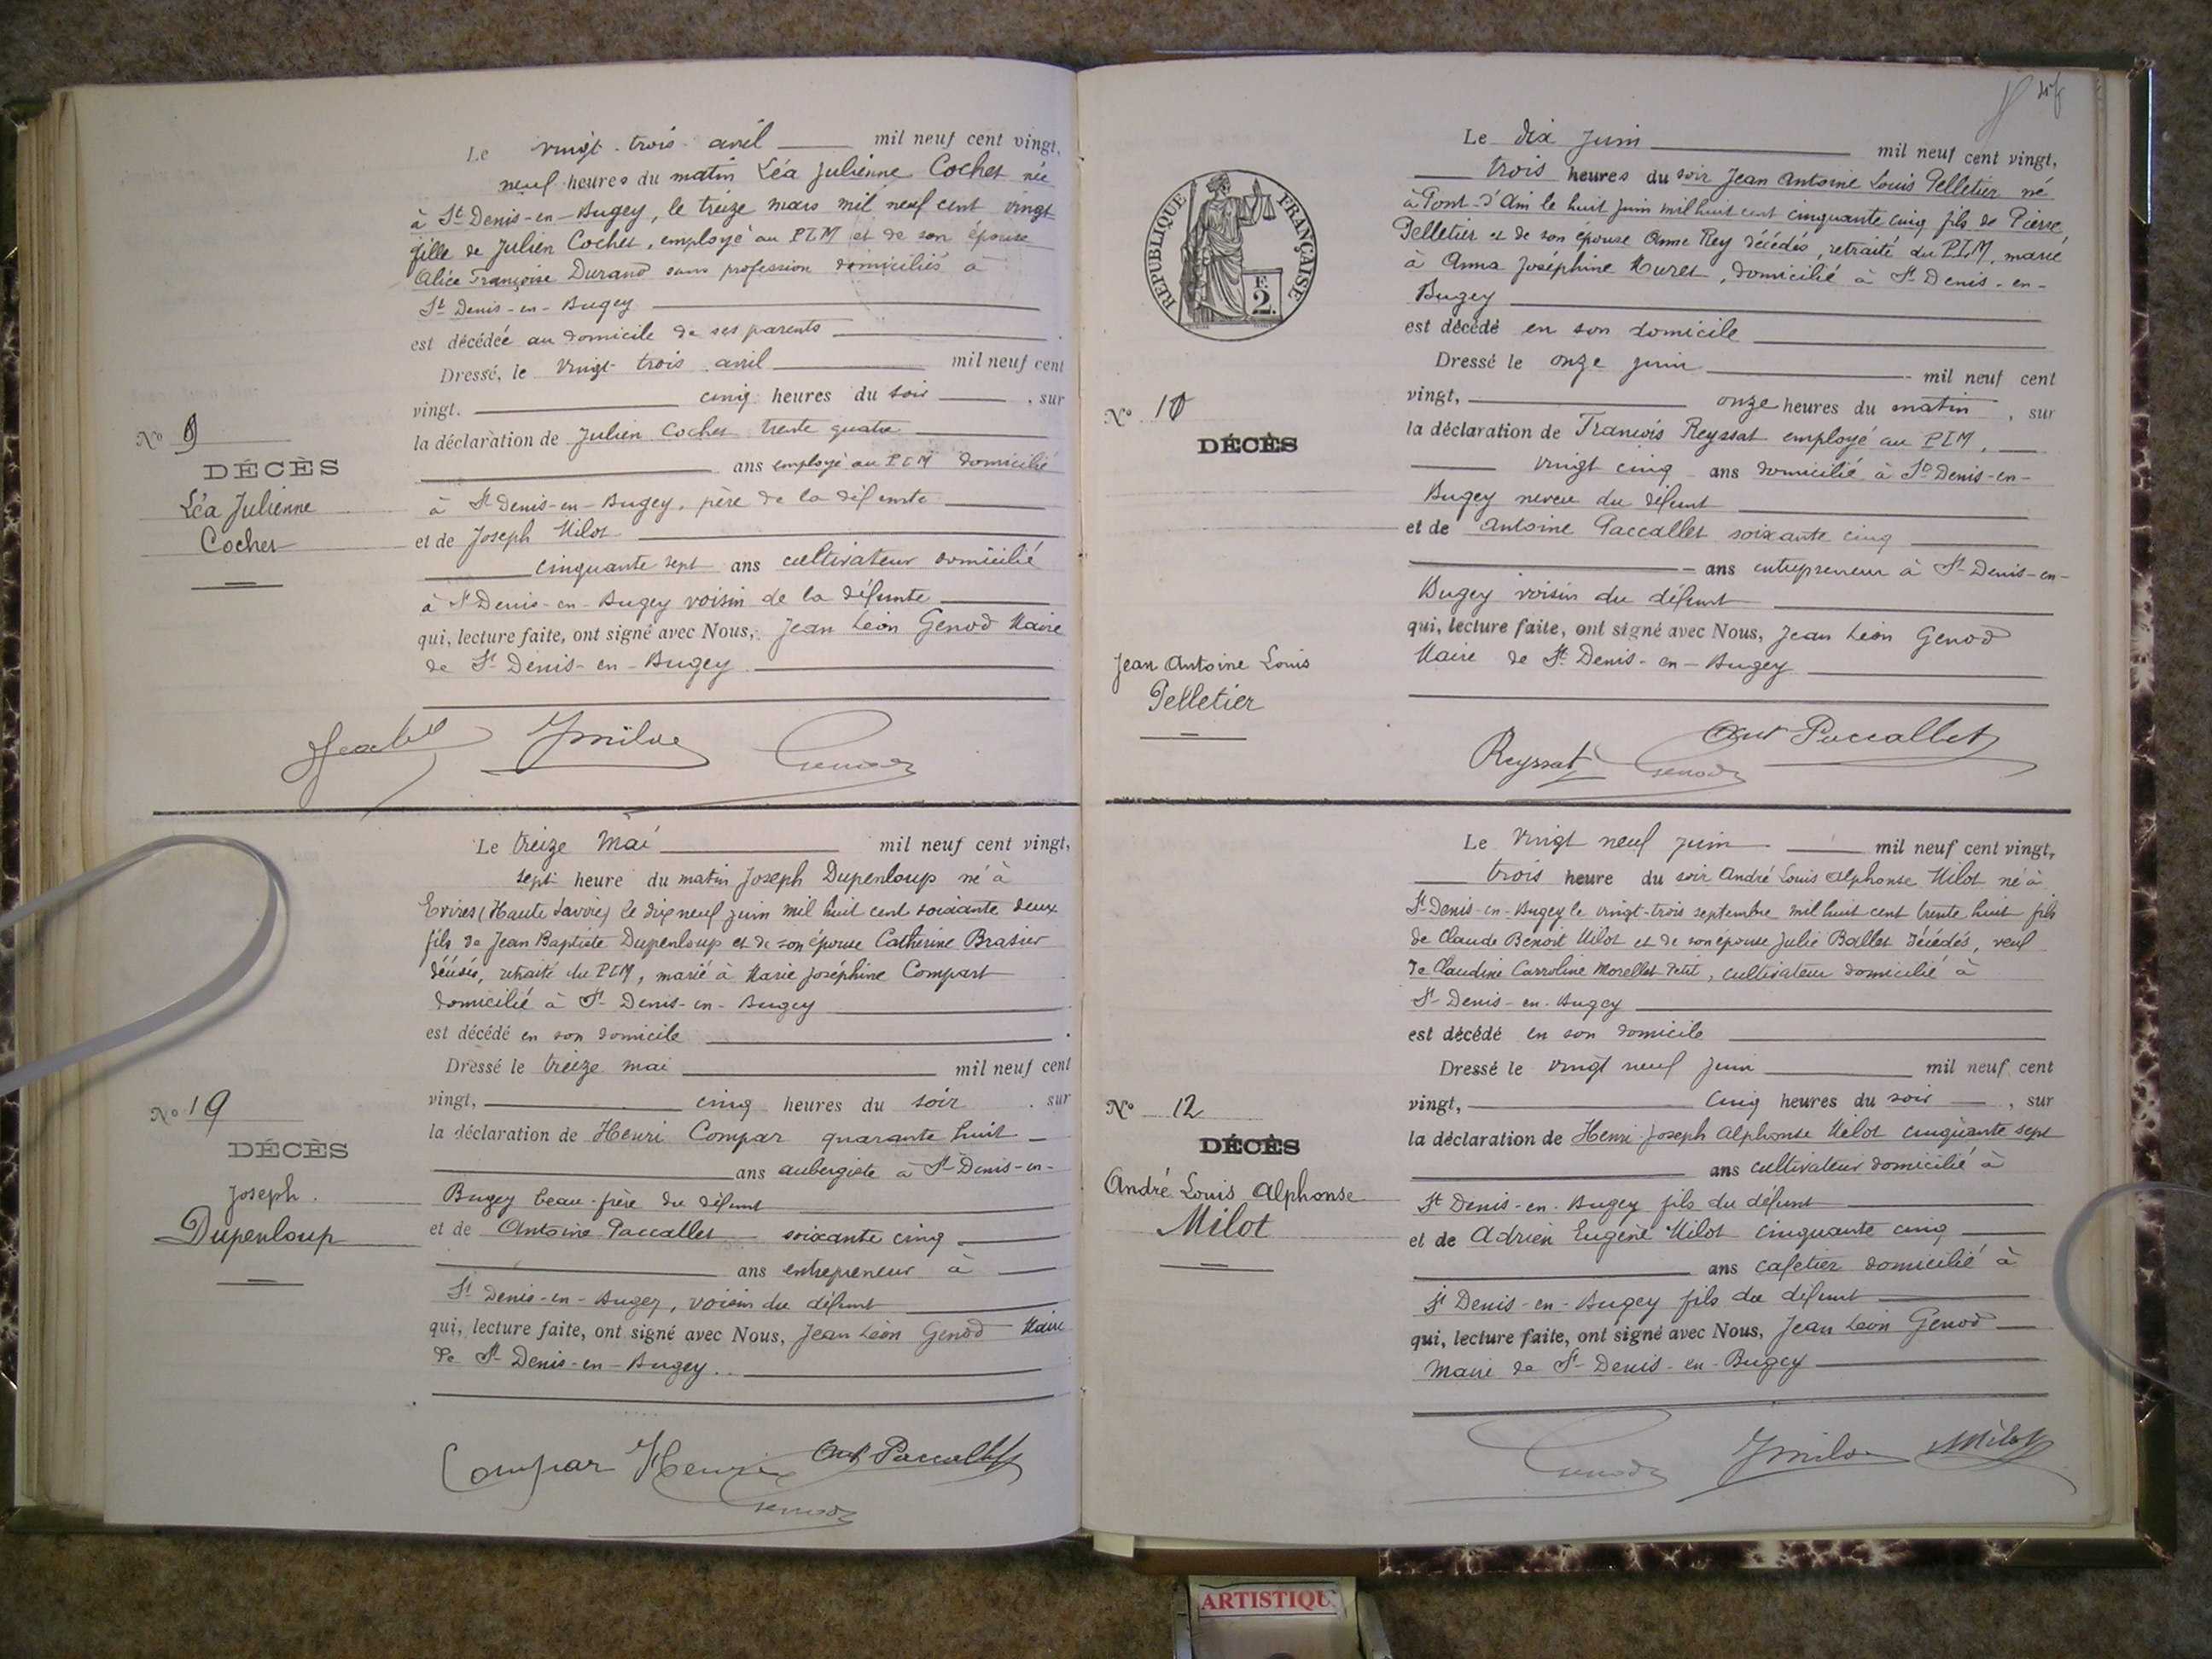 Le vingt-trois avril mil neuf cent vingt,
neuf heures du matin Léa Julienne Cochet née
à St Denis-en-Bugey, le treize mars mil neuf cent vingt
fille de Julien Cochet, employé au PLM et de son épouse
Alice Françoise Durand sans profession domiciliés à
St Denis-en-Bugey
est décédée au domicile de ses parents
Dressé, le vingt trois avril mil neuf cent
vingt. cinq heures du soir, sur
la déclaration de Julien Cochet trente quatre
ans employé au PLM domicilié
à St Denis-en-Bugey, père de la défunte
et de Joseph Milot
cinquante sept ans cultivateur domicilié
à St Denis-en-Bugey voisin de la défunte
qui, lecture faite, ont signé avec Nous, Jean Léon Genod Maire
de St Denis-en-Bugey
No 9
DÉCÈS
Léa Julienne
Cochet
JMilot Genod
Le treize Mai mil neuf cent vingt,
sept heure du matin Joseph Dupenloup né à
Evires (Haute Savoie) le dix neuf juin mil huit cent soixante deux
fils de Jean Baptiste Dupenloup et de son épouse Catherine Brasier
décédés, retraité du PLM, marié à Marie Joséphine Compart
domicilié à St Denis-en-Bugey
est décédé en son domicile
Dressé le treize mai mil neuf cent
vingt, cinq heures du soir, sur
la déclaration de Henri Compar quarante huit
ans aubergiste à St Denis-en-
Bugey beau-frère du défunt
et de Antoine Paccallet soixante cinq
ans entrepreneur à
St Denis-en-Bugey, voisin du défunt
qui, lecture faite, ont signé avec Nous, Jean Léon Genod Maire
de St Denis-en-Bugey.
No 10
DÉCÈS
Joseph
Dupenloup
Compar Henri Ant Paccallet
Genod
Le dix juin mil neuf cent vingt,
trois heures du soir Jean Antoine Louis Pelletier né
à Pont-d'Ain le huit juin mil huit cent cinquante cinq fils de Pierre
Pelletier et de son épouse Anne Rey décédés, retraité du PLM, marié
à Anna Joséphine Muret, domicilié à St Denis-en-
Bugey
est décédé en son domicile
Dressé le onze juin mil neuf cent
vingt, onze heures du matin, sur
la déclaration de François Reyssat employé au PLM,
vingt cinq ans domicilié à St Denis-en-
Bugey neveu du défunt
et de Antoine Paccallet soixante cinq
ans entrepreneur à St Denis-en-
Bugey voisin du défunt
qui, lecture faite, ont signé avec Nous, Jean Léon Genod
Maire de St Denis-en-Bugey
RÉPUBLIQUE FRANÇAISE
F.
2.
No
DÉCÈS
Jean Antoine Louis
Pelletier
Reyssat Genod Ant Paccallet
Le vingt neuf juin mil neuf cent vingt,
trois heure du soir André Louis Alphonse Milot né à
St Denis-en-Bugey le vingt-trois septembre mil huit cent trente huit fils
de Claude Benoit Milot et de son épouse Julie Ballet décédés, veuf
de Claudine Carroline Morellet Petit, cultivateur domicilié à
St Denis-en-Bugey
est décédé en son domicile
Dressé le vingt neuf juin mil neuf cent
vingt, cinq heures du soir, sur
la déclaration de Henri Joseph Alphonse Milot cinquante sept
ans cultivateur domicilié à
St Denis-en-Bugey fils du défunt
et de Adrien Eugène Milot cinquante cinq
ans cafetier domicilié à
St Denis-en-Bugey fils du défunt
qui, lecture faite, ont signé avec Nous, Jean Léon Genod
Maire de St Denis-en-Bugey
No 12
DÉCÈS
André Louis Alphonse
Milot
Genod JMilot AMilot
ARTISTIQU